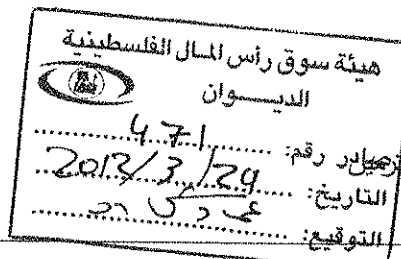 هيئة سوق رأس المال الفلسطينية
الديـــوان
رقم: 471
التاريخ: 2012/3/29
التوقيع: